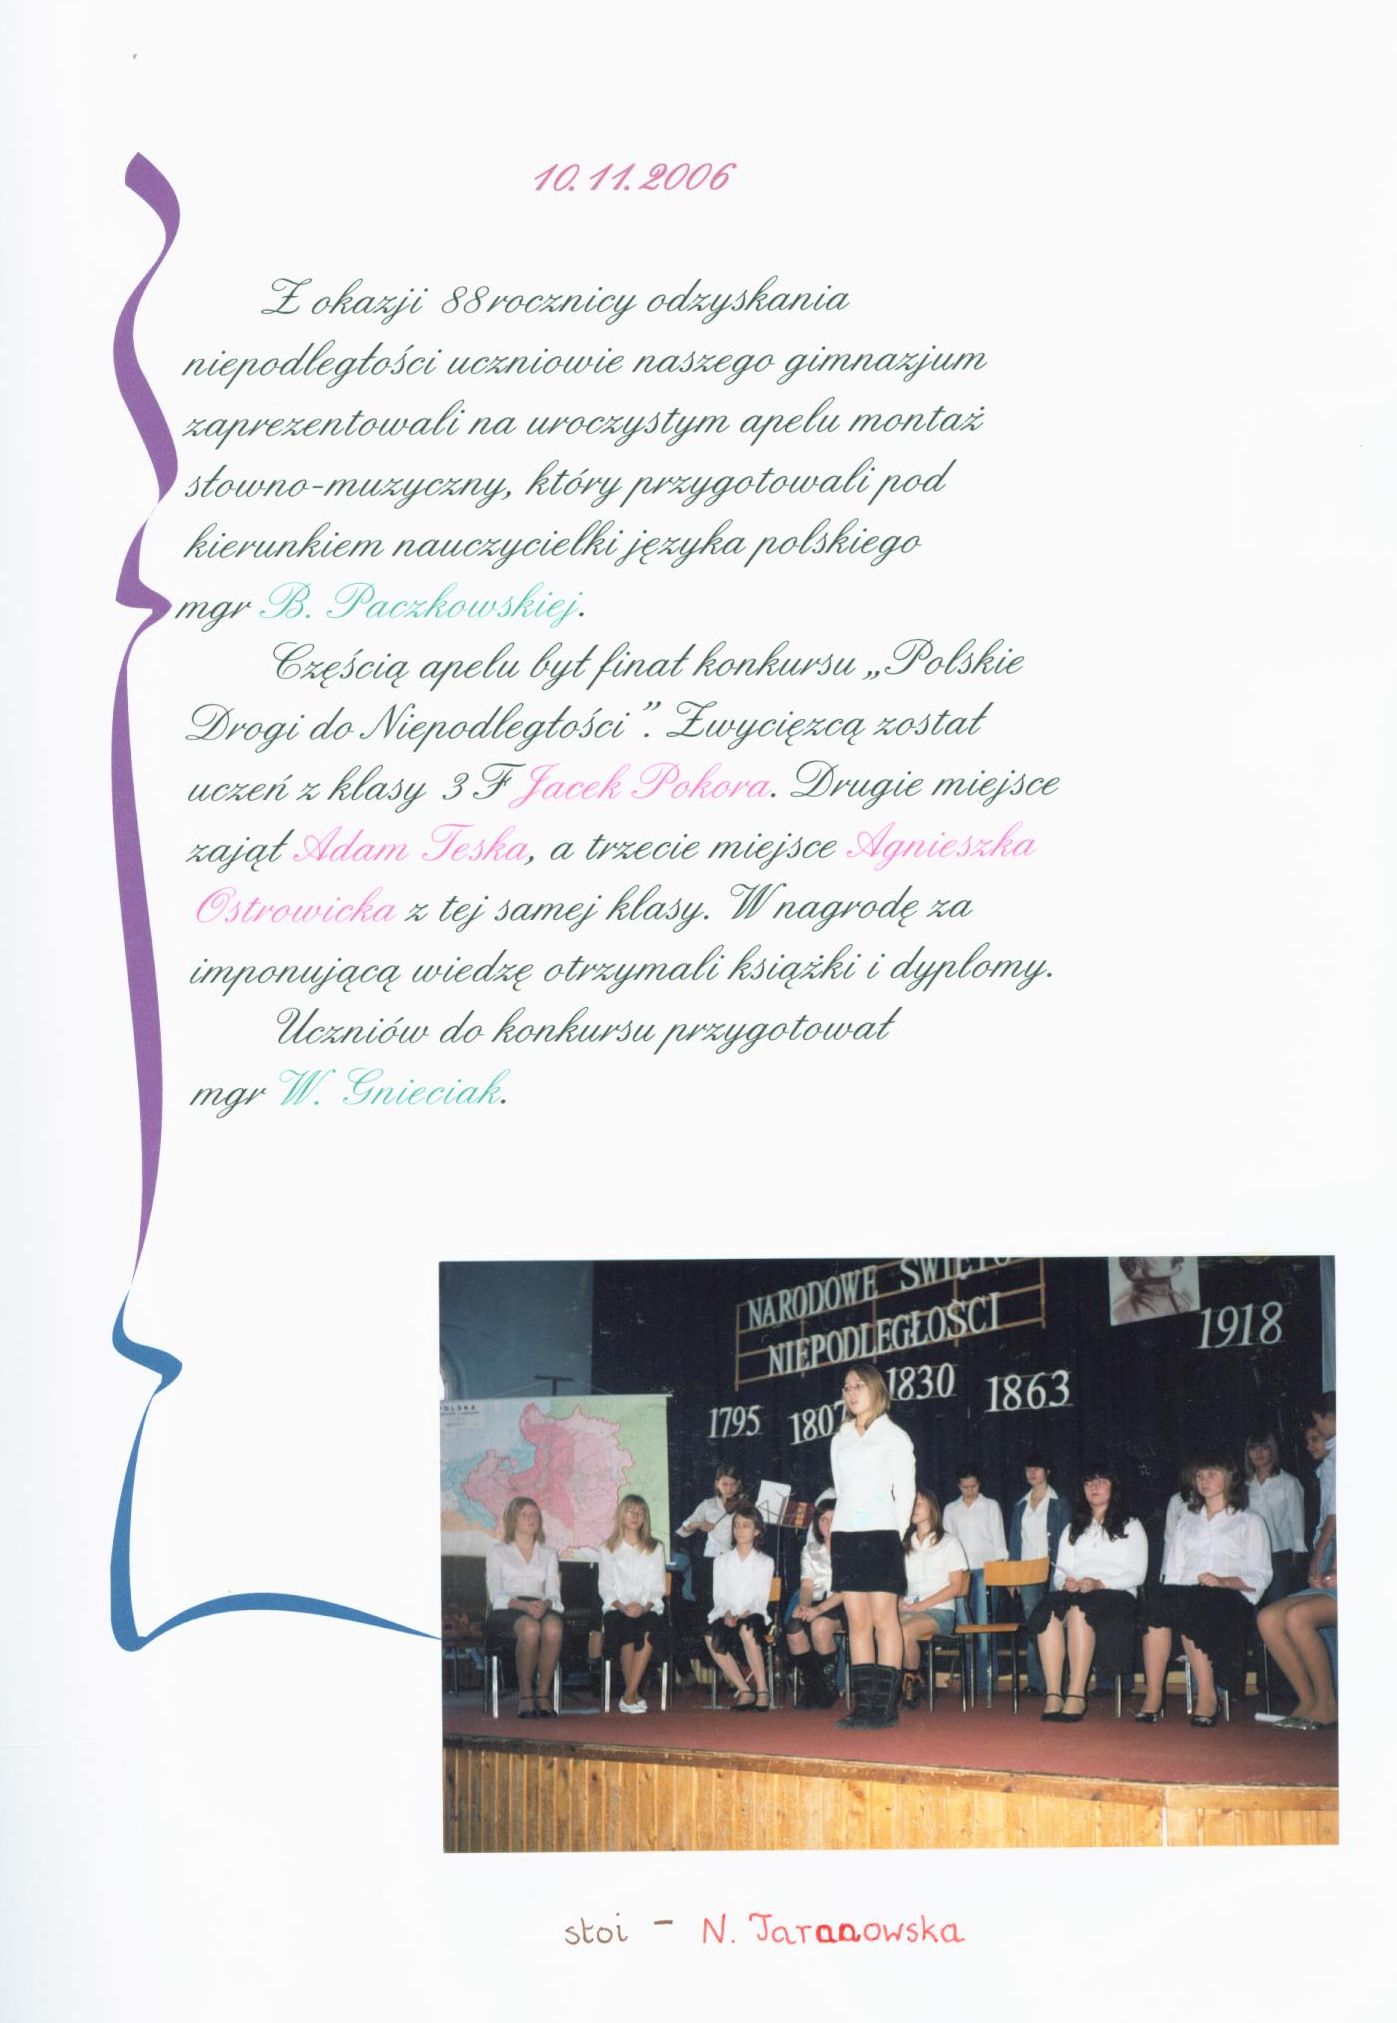 10.11.2006
Z okazji 88 rocznicy odzyskania
niepodległości uczniowie naszego gimnazjum
zaprezentowali na uroczystym apelu montaż
słowno-muzyczny, który przygotowali pod
kierunkiem nauczycielki języka polskiego
mgr B. Paczkowskiej.
Częścią apelu był finał konkursu „Polskie
Drogi do Niepodległości”. Zwycięzcą został
uczeń z klasy 3 F Jacek Pokora. Drugie miejsce
zajął Adam Teska, a trzecie miejsce Agnieszka
Ostrowicka z tej samej klasy. W nagrodę za
imponującą wiedzę otrzymali książki i dyplomy.
Uczniów do konkursu przygotował
mgr W. Gnieciak.
NARODOWE ŚWIĘTO
NIEPODLEGŁOŚCI
1918
1795 1807 1830 1863
POLSKA
stoi - N. Taranowska